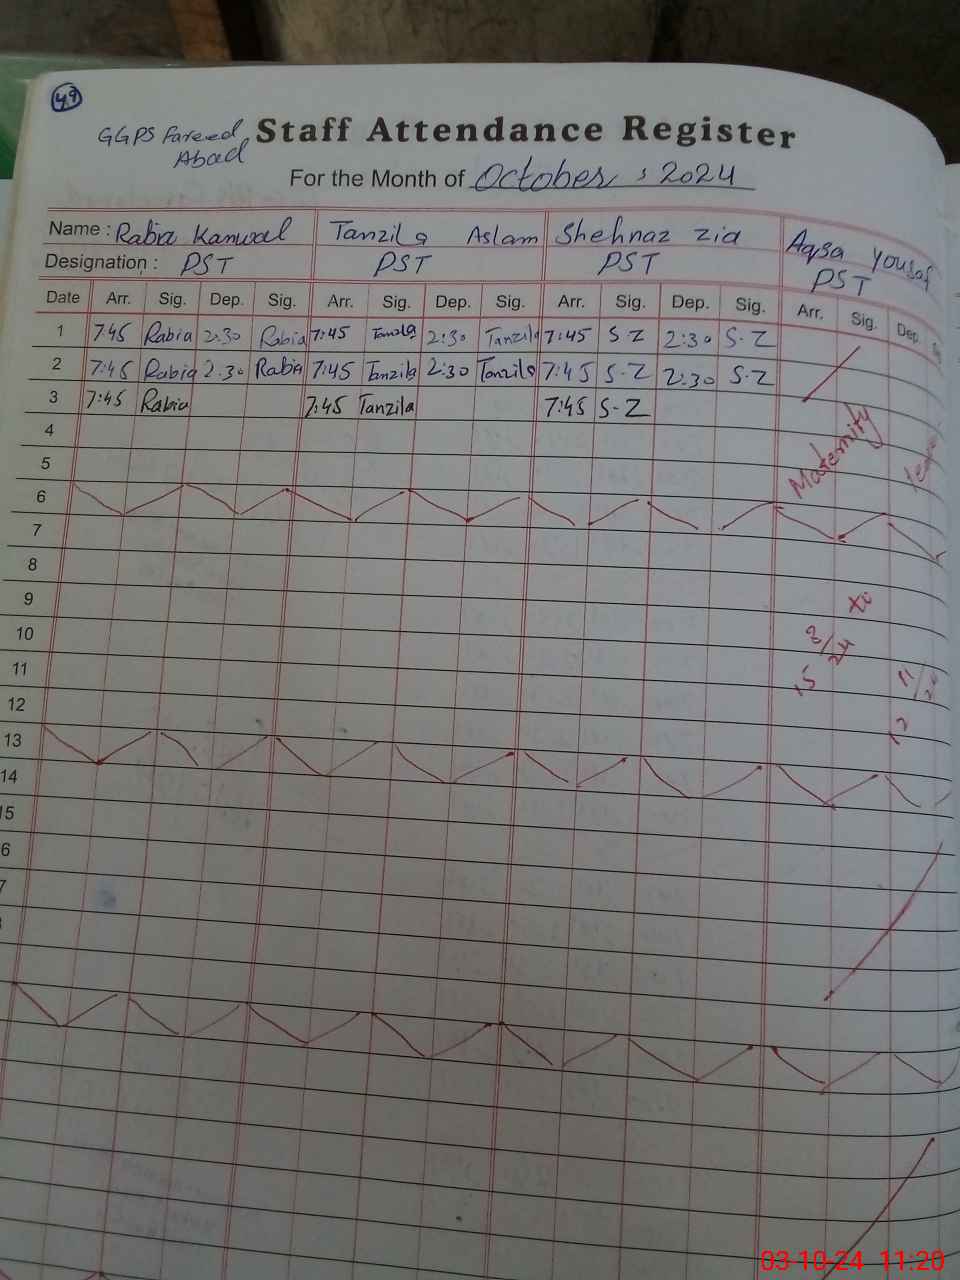 49
GGPS Fareed Abad
Staff Attendance Register
For the Month of October, 2024
Name : Rabia Kanwal Tanzila Aslam Shehnaz Zia Aqsa Yousaf
Designation : PST PST PST PST
Date Arr. Sig. Dep. Sig. Arr. Sig. Dep. Sig. Arr. Sig. Dep. Sig. Arr. Sig. Dep.
1 7:45 Rabia 2:30 Rabia 7:45 Tanzila 2:30 Tanzila 7:45 S-Z 2:30 S-Z
2 7:45 Rabia 2:30 Rabia 7:45 Tanzila 2:30 Tanzila 7:45 S-Z 2:30 S-Z
3 7:45 Rabia 7:45 Tanzila 7:45 S-Z
4
Maternity leave
5
6
7
8
9
to
10
15 3/24
11
11/24
12
12
13
14
15
6
7
03-10-24 11:20